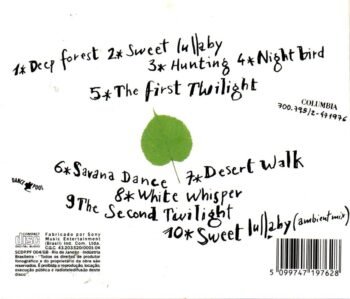 1* Deep forest 2* Sweet lullaby
3* Hunting 4* Night bird
5* The first Twilight
COLUMBIA
700.798/2-471976
6* Savana Dance 7* Desert Walk
8* White Whisper
9 The Second Twilight
10* Sweet lullaby (ambient mix)
DANCE POOL
COMPACT
disc
DIGITAL AUDIO
Fabricado por Sony
Music Entertainment
(Brasil) Ind. Com. Ltda.
Rio de Janeiro - Indústria
Brasileira - "Todos os direitos do produtor
fonográfico e do proprietário da obra são
reservados. É proibida a reprodução, locação,
execução pública e radioteledifusão deste
disco"
5 099747 197628